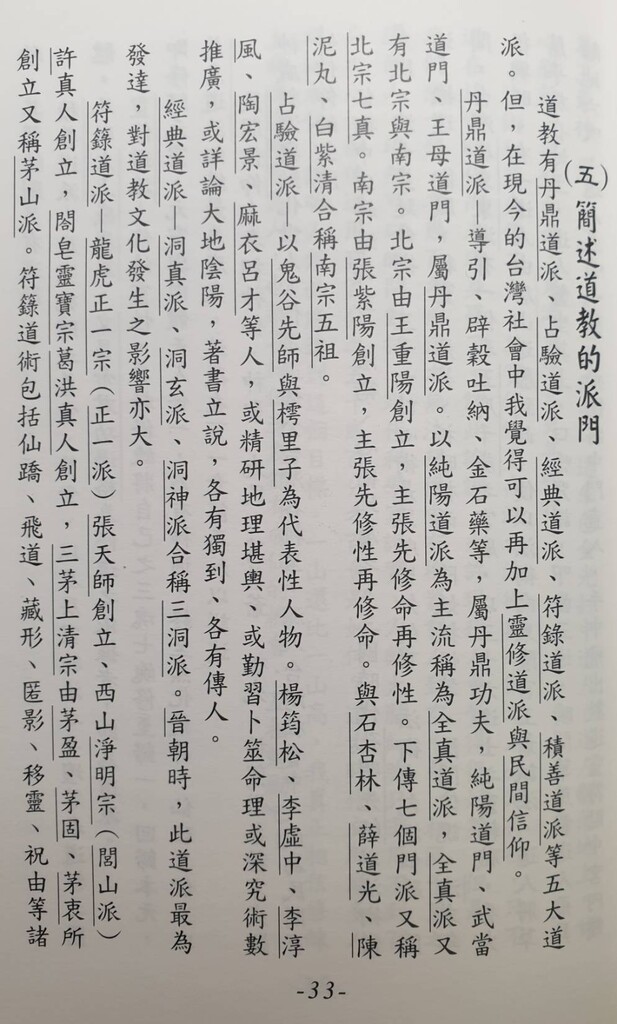 (五)簡述道教的派門
道教有丹鼎道派、占驗道派、經典道派、符錄道派、積善道派等五大道
派。但，在現今的台灣社會中我覺得可以再加上靈修道派與民間信仰。
丹鼎道派—導引、辟穀吐納、金石藥等，屬丹鼎功夫，純陽道門、武當
道門、王母道門，屬丹鼎道派。以純陽道派為主流稱為全真道派，全真派又
有北宗與南宗。北宗由王重陽創立，主張先修命再修性。下傳七個門派又稱
北宗七真。南宗由張紫陽創立，主張先修性再修命。與石杏林、薛道光、陳
泥丸、白紫清合稱南宗五祖。
占驗道派—以鬼谷先師與樗里子為代表性人物。楊筠松、李虛中、李淳
風、陶宏景、麻衣呂才等人，或精研地理堪輿、或勤習卜筮命理或深究術數
推廣，或詳論大地陰陽，著書立說，各有獨到、各有傳人。
經典道派—洞真派、洞玄派、洞神派合稱三洞派。晉朝時，此道派最為
發達，對道教文化發生之影響亦大。
符籙道派—龍虎正一宗（正一派）張天師創立、西山淨明宗（閭山派）
許真人創立，閤皂靈寶宗葛洪真人創立，三茅上清宗由茅盈、茅固、茅衷所
創立又稱茅山派。符籙道術包括仙蹻、飛道、藏形、匿影、移靈、祝由等諸
-33-